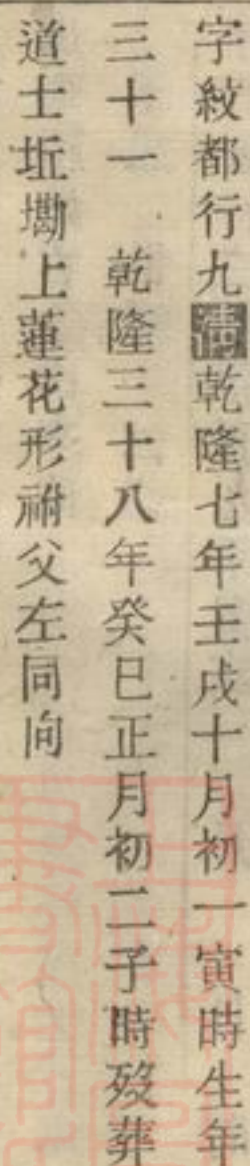 字紋都行九清乾隆七年壬戌十月初一寅時生年
三十一　乾隆三十八年癸巳正月初二子時歿葬
道士坵墈上蓮花形祔父左同向